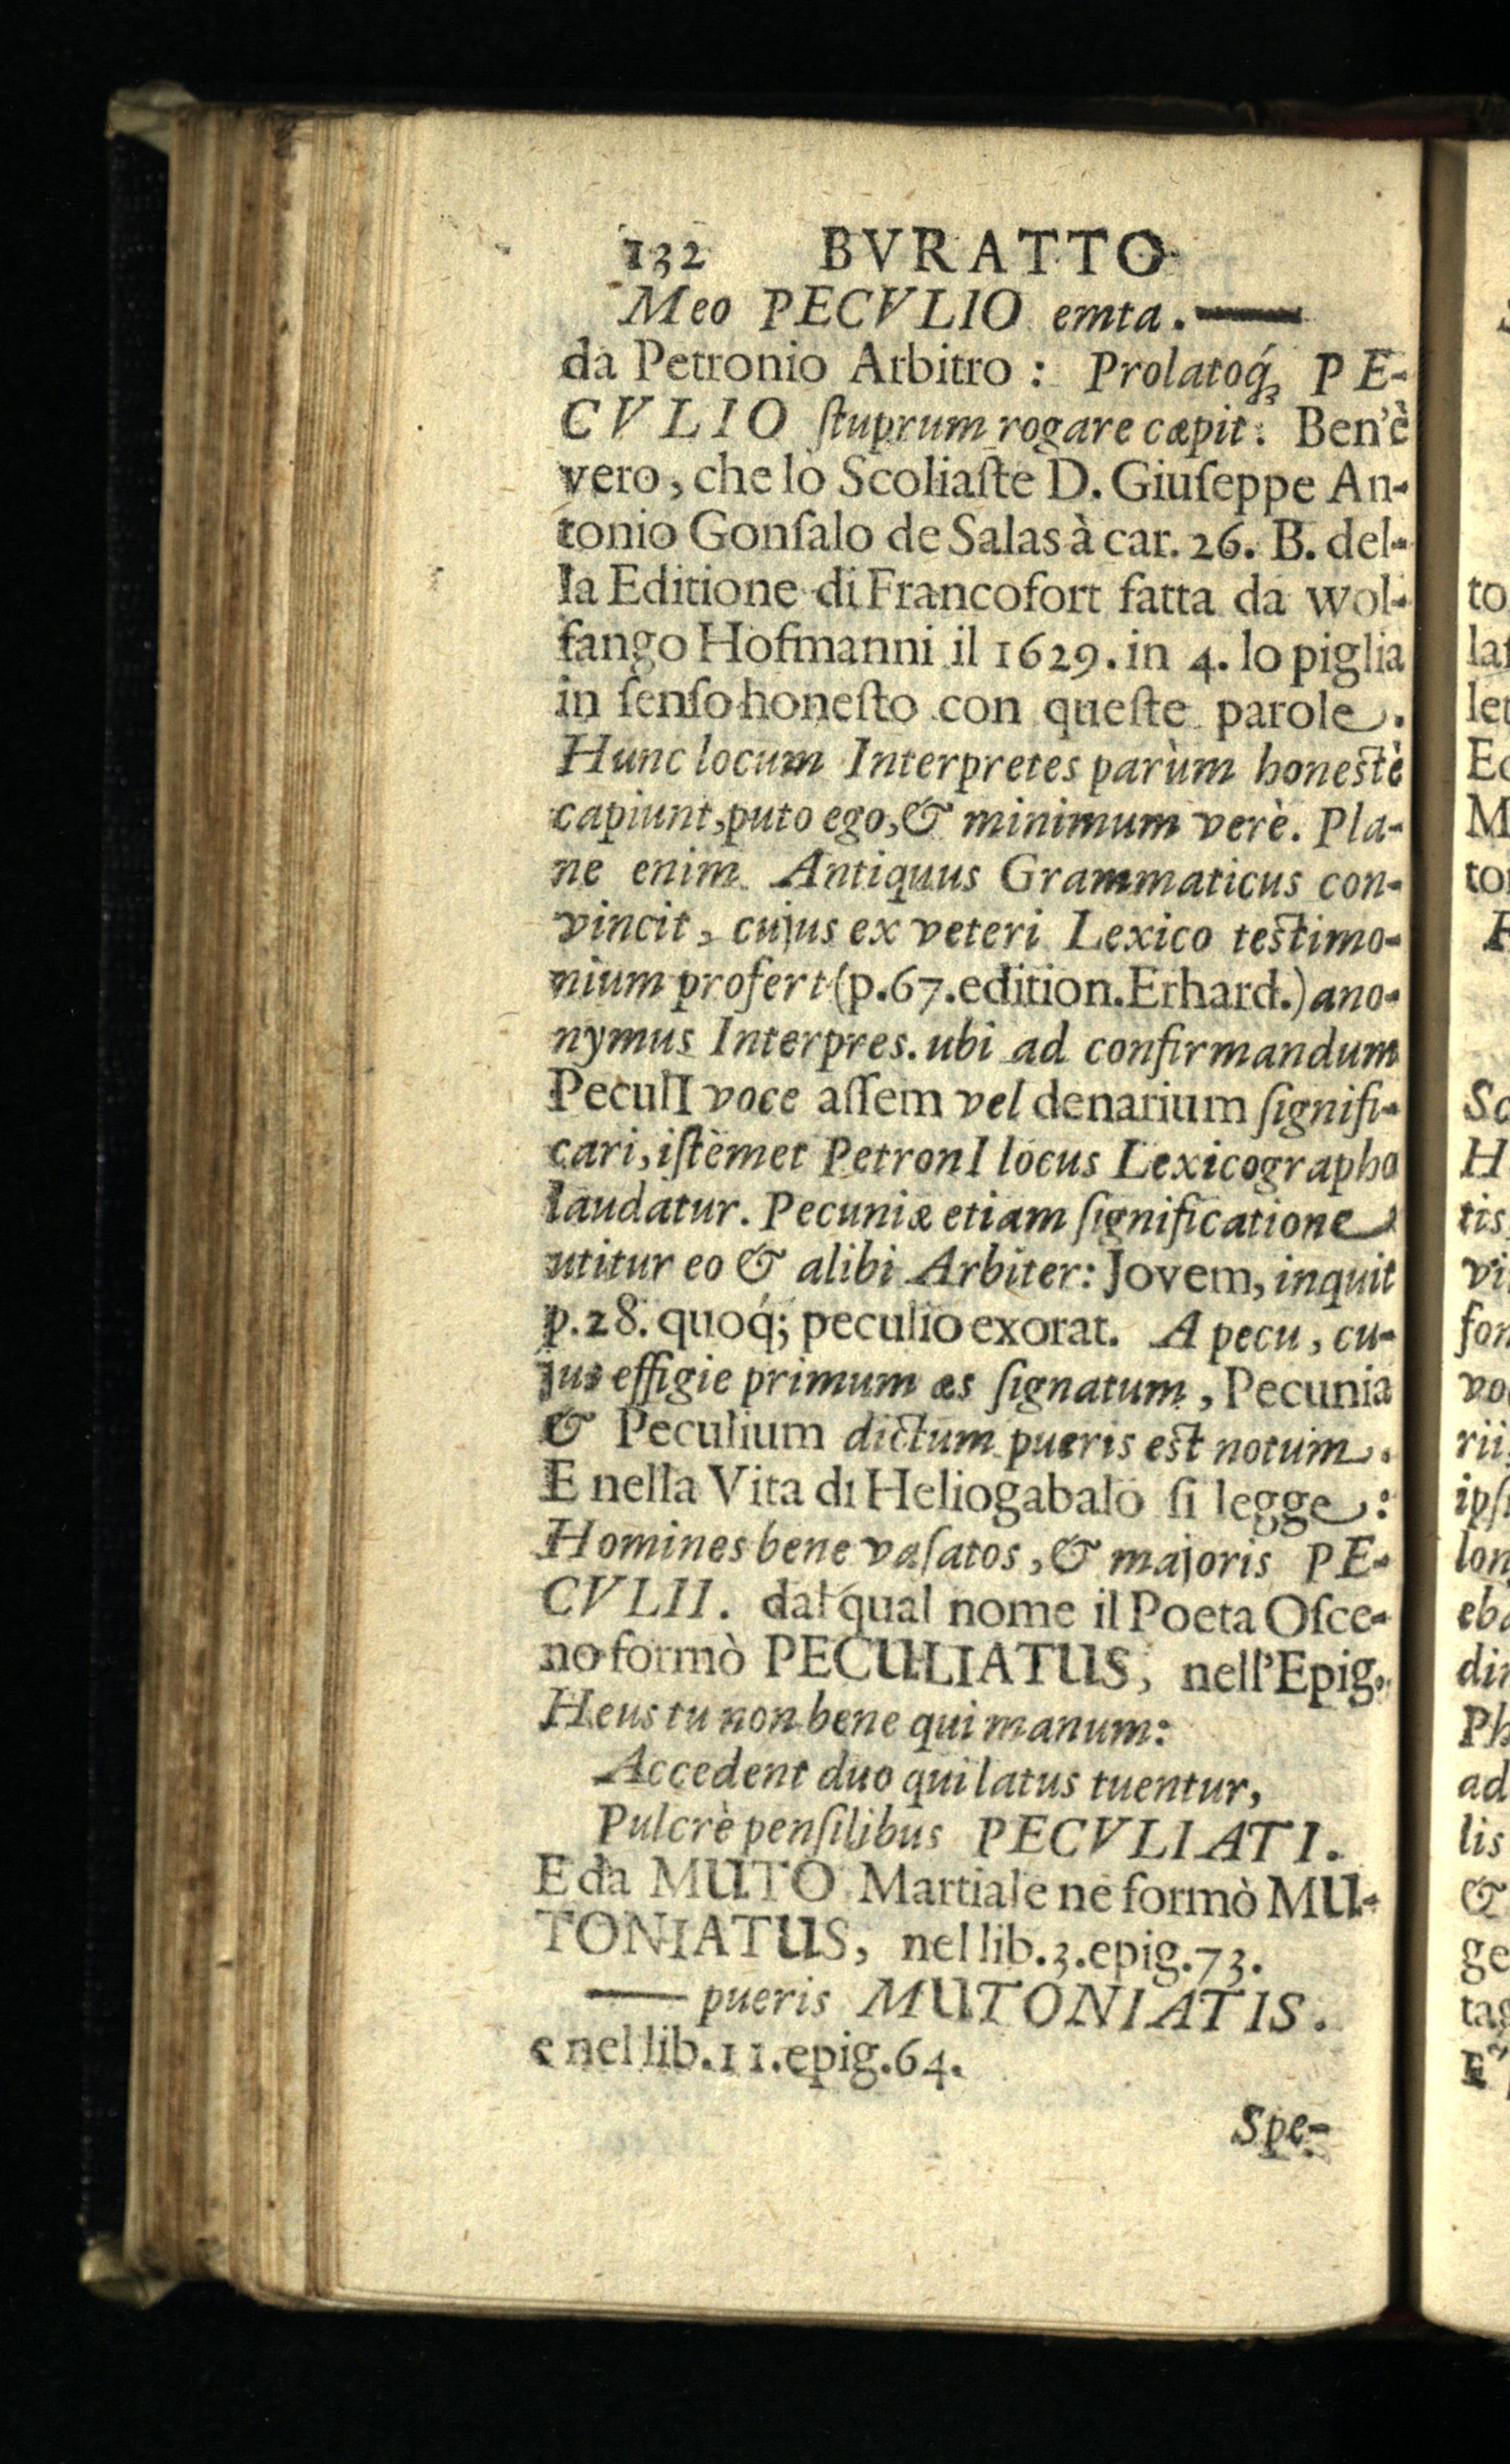 132 BVRATTO
Meo PECVLIO emta.——
da Petronio Arbitro : Prolatoq́ꝫ PE-
CVLIO ſtuprum rogare cœpit. Ben'è
vero, che lo Scoliaſte D. Giuſeppe An-
tonio Gonſalo de Salas à car. 26. B. del-
la Editione di Francofort fatta da wol-
fango Hofmanni il 1629. in 4. lo piglia
in ſenſo honeſto con queſte parole.
Hunc locum Interpretes parùm honeſtè
capiunt, puto ego, & minimum verè. Pla-
ne enim Antiquus Grammaticus con-
vincit, cujus ex veteri Lexico teſtimo-
nium profert (p.67.edition.Erhard.) ano-
nymus Interpres. ubi ad confirmandum
PeculI voce aſſem vel denarium ſignifi-
cari, iſtèmet PetronI locus Lexicographo
laudatur. Pecuniæ etiam ſignificatione
utitur eo & alibi Arbiter: Jovem, inquit
p.28. quoq́; peculio exorat. A pecu, cu-
jus effigie primum æs ſignatum, Pecunia
& Peculium dictum pueris eſt notum.
E nella Vita di Heliogabalo ſi legge:
Homines bene vaſatos, & majoris PE-
CVLII. dal qual nome il Poeta Oſce-
no formò PECULIATUS, nell'Epig.
Heus tu non bene qui manum:
Accedent duo qui latus tuentur,
Pulcrè penſilibus PECVLIATI.
E da MUTO Martiale ne formò MU-
TONIATUS, nel lib.3.epig.73.
—— pueris MUTONIATIS.
e nel lib.11.epig.64.
Spe-
to
let
M
H
tis
vi
fon
vo
rii
ipſ
lon
eba
din
Ph
ad
lis
&
ge